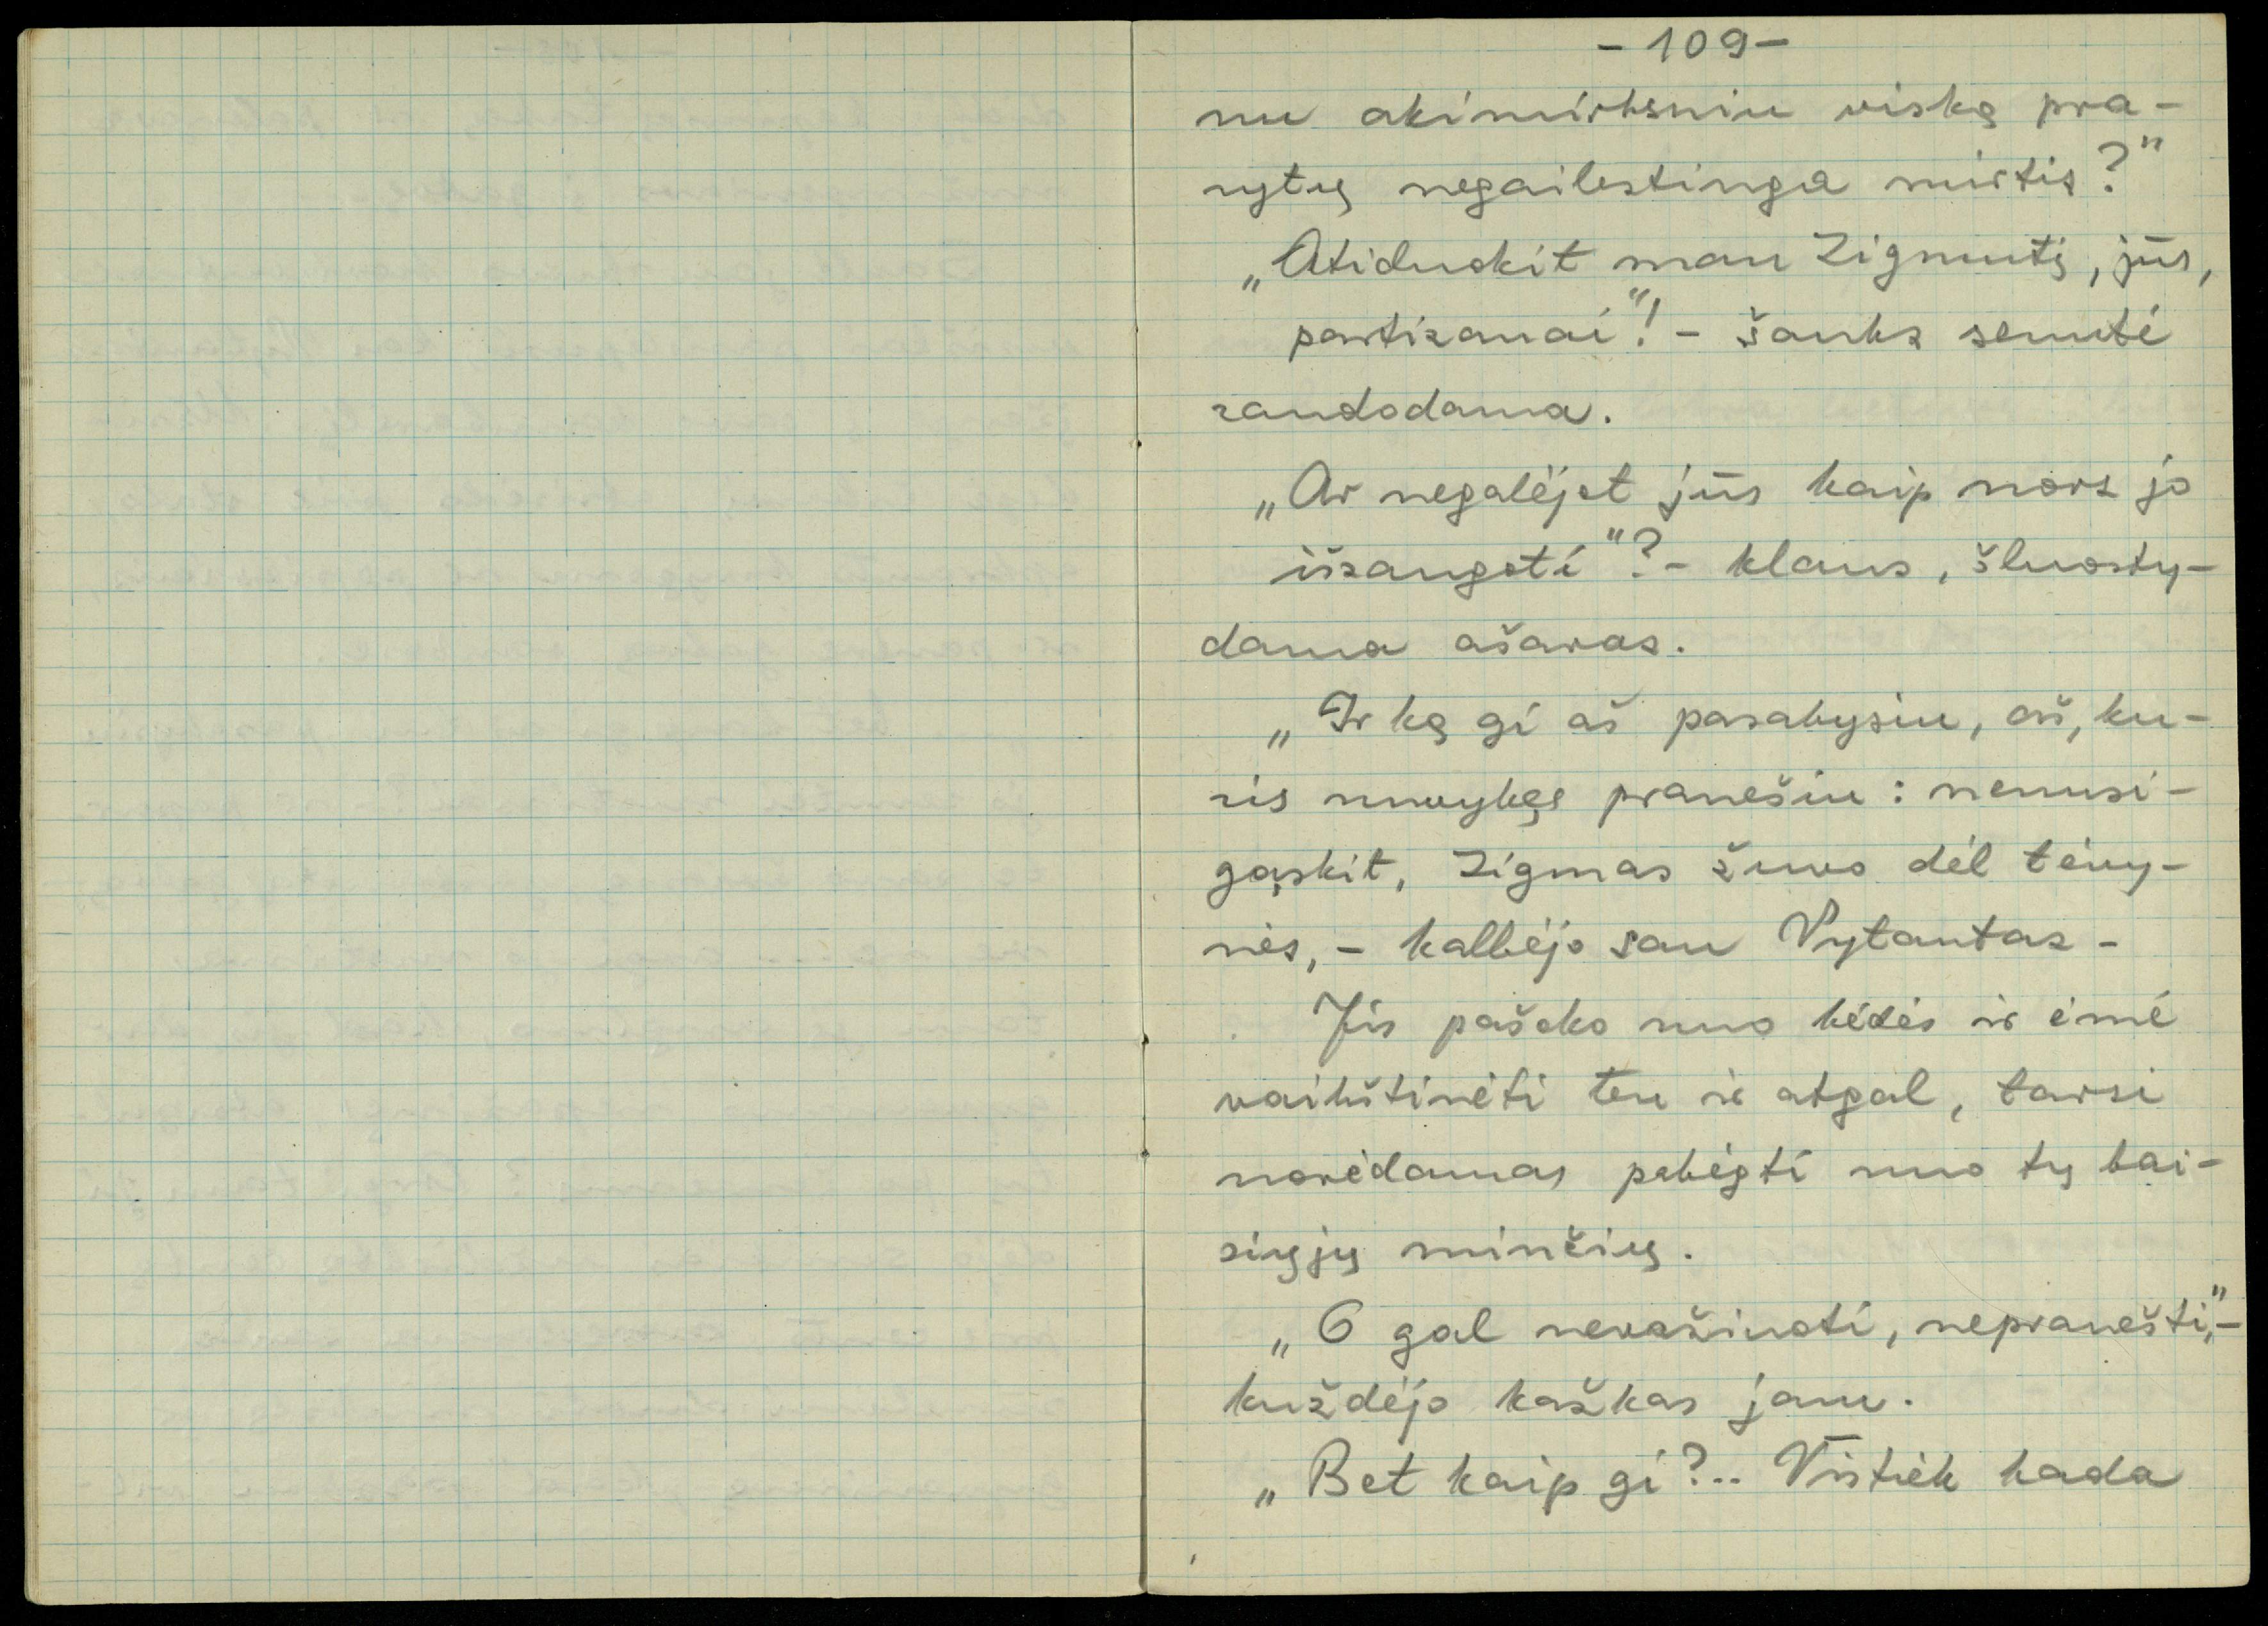 - 109 -
nu akimirksniu viską pra-
rytų negailestinga mirtis?"
„Atiduokit man Zigmutį, jūs,
partizanai"! - šauks senutė
raudodama.
„Ar negalėjot jūs kaip nors jo
išsaugoti"? - klaus, šluosty-
dama ašaras.
„Ir ką gi aš pasakysiu, aš, ku-
ris nuvykęs pranešiu: nenusi-
gąskit, Zigmas žuvo dėl tėvy-
nės, - kalbėjo sau Vytautas -
Jis pašoko nuo kėdės ir ėmė
vaikštinėti ten ir atgal, tarsi
norėdamas pabėgti nuo tų bai-
siųjų minčių.
„O gal nevažiuoti, nepranešti," -
kuždėjo kažkas jam.
„Bet kaip gi?.. Vistiek kada